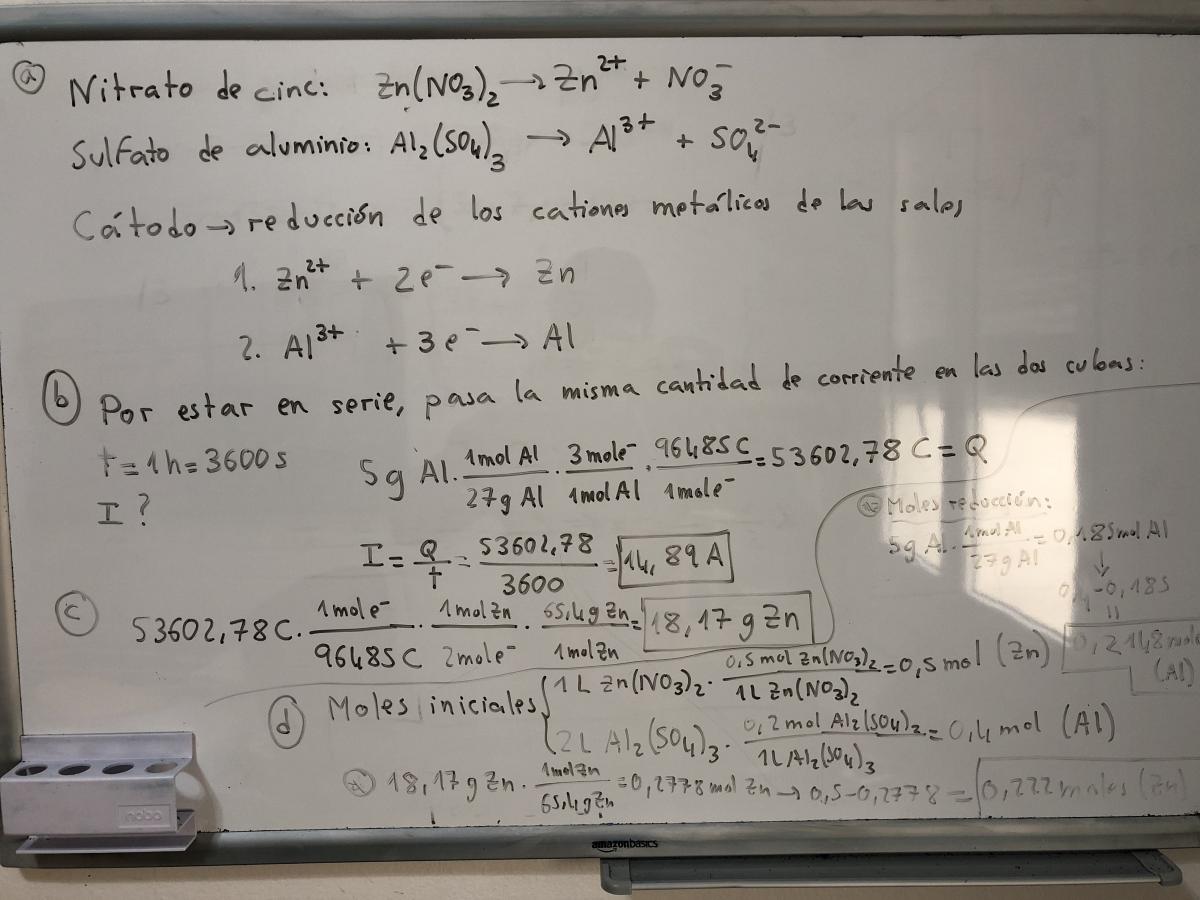 a Nitrato de cinc: Zn(NO₃)₂ → Zn²⁺ + NO₃⁻
Sulfato de aluminio: Al₂(SO₄)₃ → Al³⁺ + SO₄²⁻
Cátodo → reducción de los cationes metálicos de las sales
1. Zn²⁺ + 2e⁻ → Zn
2. Al³⁺ + 3e⁻ → Al
b Por estar en serie, pasa la misma cantidad de corriente en las dos cubas:
t = 1h = 3600 s
I ?
5 g Al · 1 mol Al / 27 g Al · 3 mol e⁻ / 1 mol Al · 96485 C / 1 mol e⁻ = 53602,78 C = Q
I = Q / t = 53602,78 / 3600 = 14,89 A
c 53602,78 C · 1 mol e⁻ / 96485 C · 1 mol Zn / 2 mol e⁻ · 65,4 g Zn / 1 mol Zn = 18,17 g Zn
Moles reducción:
5 g Al · 1 mol Al / 27 g Al = 0,185 mol Al
↓
0,4 - 0,185
=
0,2148 moles
(Al)
d Moles iniciales { 1 L Zn(NO₃)₂ · 0,5 mol Zn(NO₃)₂ / 1 L Zn(NO₃)₂ = 0,5 mol (Zn)
2 L Al₂(SO₄)₃ · 0,2 mol Al₂(SO₄)₂ / 1 L Al₂(SO₄)₃ = 0,4 mol (Al)
18,17 g Zn · 1 mol Zn / 65,4 g Zn = 0,2778 mol Zn → 0,5 - 0,2778 = 0,222 moles (Zn)
nobo
amazonbasics